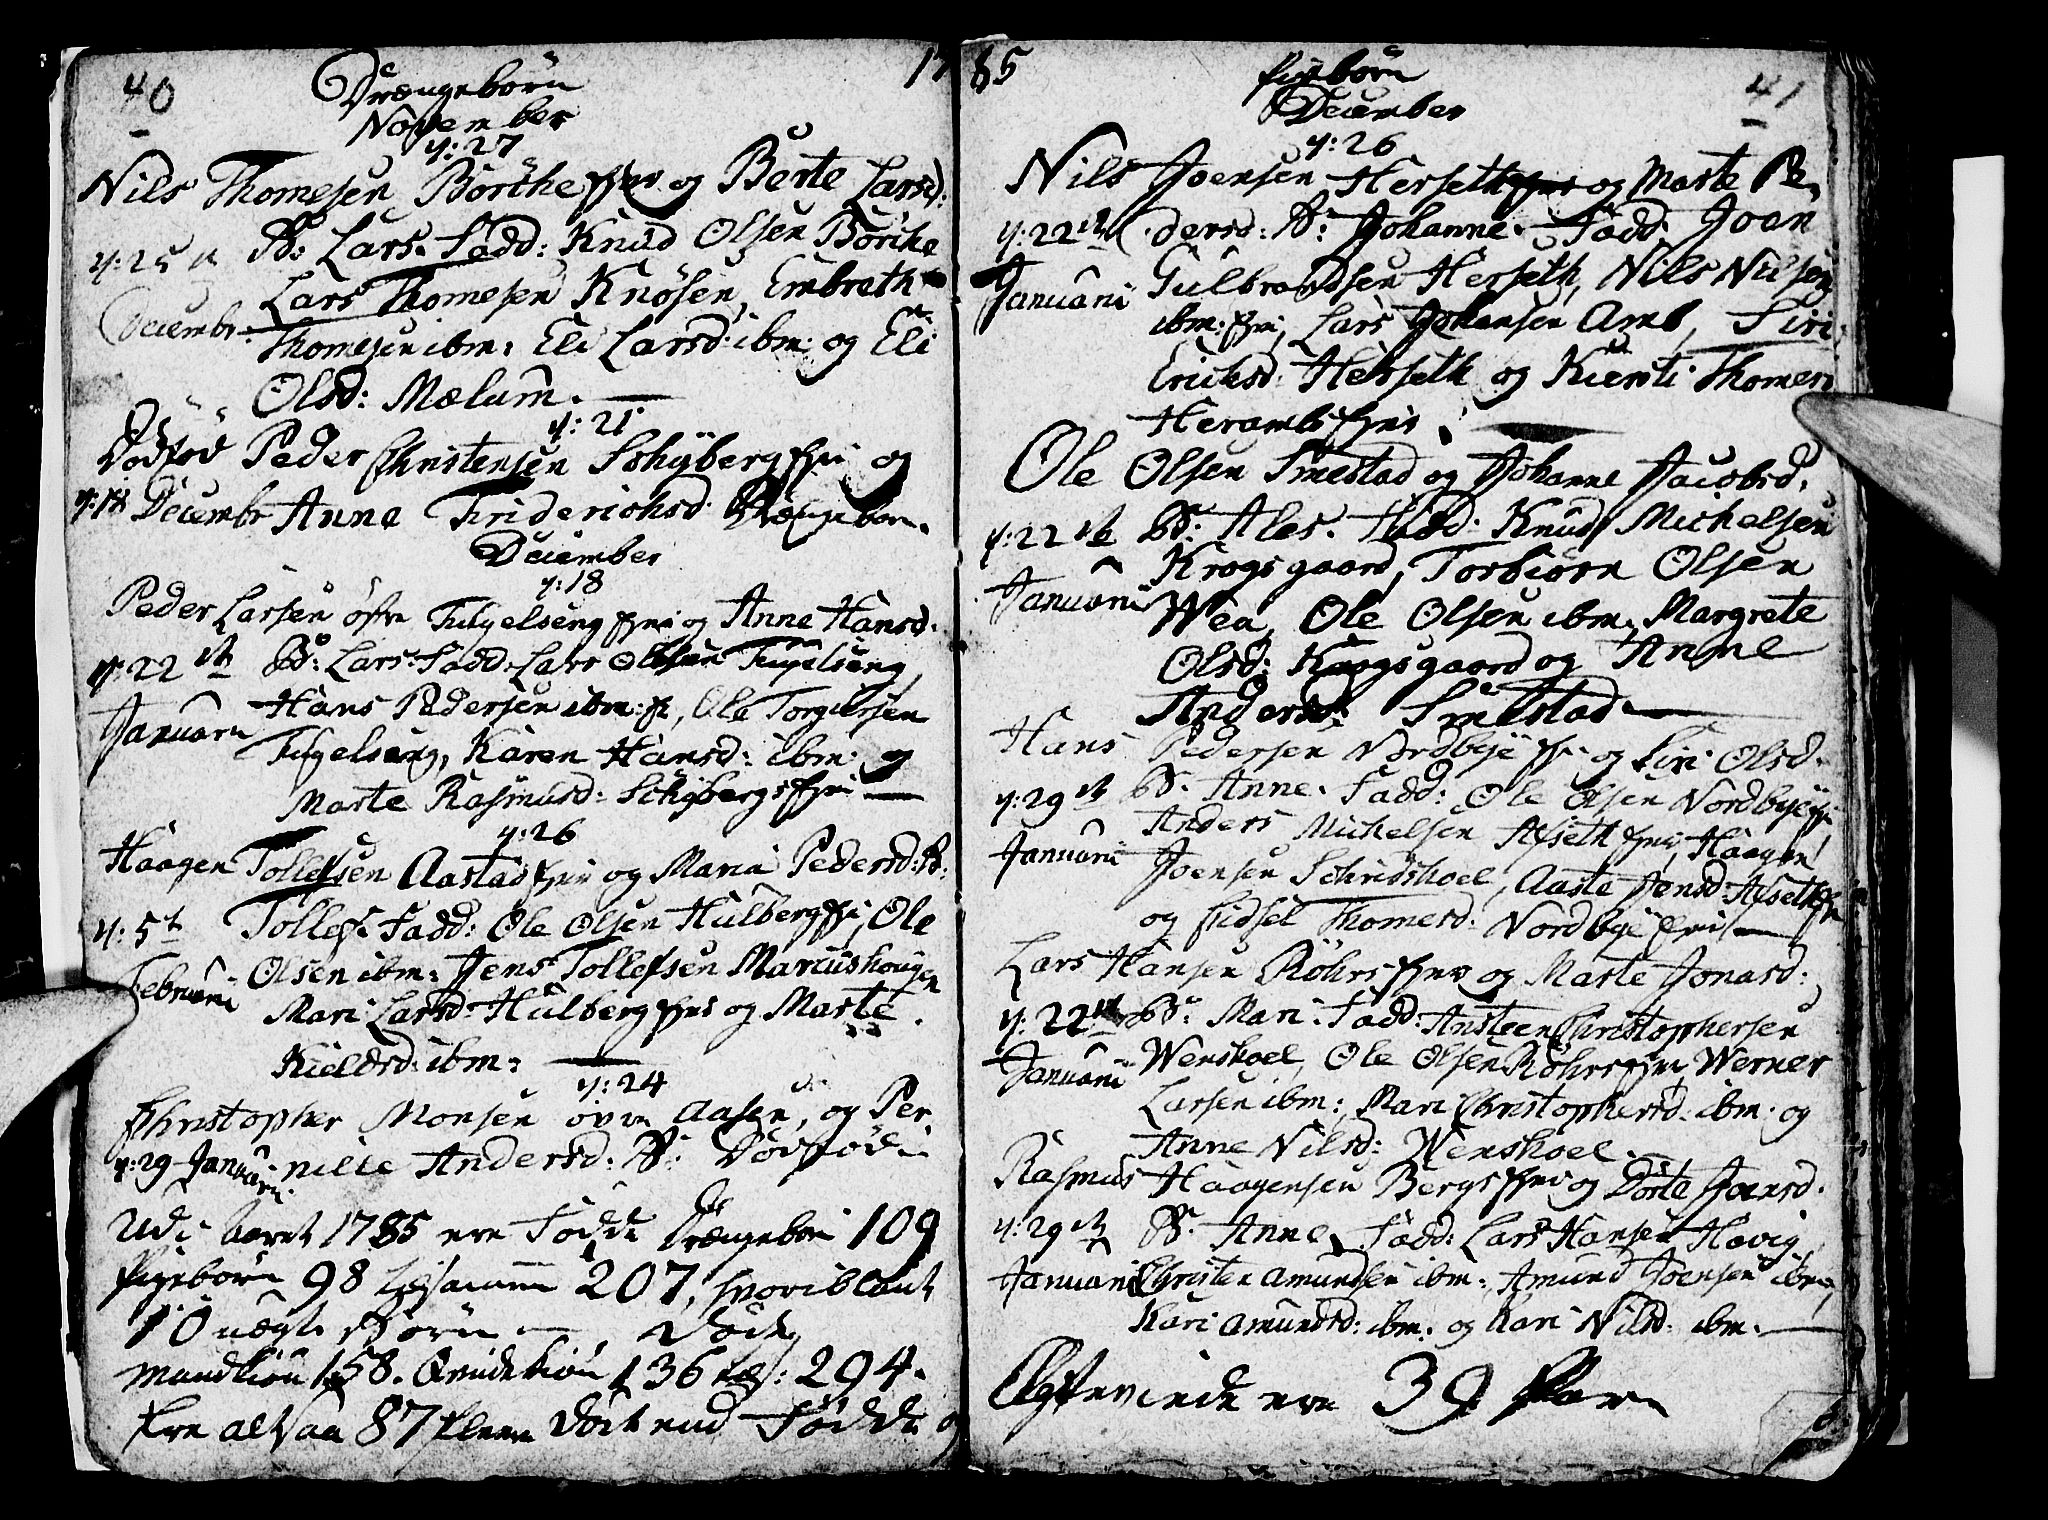 40
1785
Drængebørn
November
d: 27
Nils Thomesen Börche og Berte Larsd:
d: 25 B: Lars. Fadd: Knud Olsen Börche
Decembr. Lars Thomesen Knösen, Embreth
Thomesen ibm: Eli Larsd: ibm: og Eli
Olsd: Mælum.
d: 21
Dödföd Peder Christensen Schÿberg og
d: 18 Decembr Anne Friderichsd: Drængebarn.
December
d: 18
Peder Larsen öfre Fugelseng og Anne Hansd.
d: 22 B: Lars. Fadd: Lars Olsen Fugelseng,
Januari Hans Pedersen ibm:, Ole Torgiersen
Fugelseng, Karen Hansd: ibm: og
Marte Rasmusd: Schÿbergs
d: 26
Haagen Tollefsen Aastad og Maria Pedersd: B:
d: 5t Tollef. Fadd: Ole Olsen Hulberg, Ole
Februari Olsen ibm: Jens Tollefsen Marcushougen
Mari Larsd: Hulberg og Marte
Kieldsd: ibm:
d: 24
Christopher Monsen övre Aasen, og Per
d: 29 Januari nille Andersd: B: Dödföd
Udi Aaret 1785 ere Födde Drængebörn 109
Pigebörn 98 tilsamen 207, hvoriblant
10 uægte Börn, Döde
Mandkiön 158. Qvindekiön 136 tils: 294.
Ere altsaa 87 fleere Döde end Födde
Pigebörn
41
December
d: 26
Nils Joensen Herseth og Marte Pe,
d: 22 dersd: B: Johanne. Fadd: Joan
Januarii Gulbrandsen Herseth, Nils Nilsen
ibm:, Lars Johansen Amb, Siri
Ericksd: Herseth og Kiersti Thomesd
Herambs
Ole Olsen Smestad og Johanne Jacobsd.
d: 22 B: Ales. Fadd: Knud Michelsen
Januarii Krogsgaard, Torbiörn Olsen
Wea, Ole Olsen ibm, Margrete
Olsd: Krogsgaard og Anne
Andersd: Smestad.
Hans Pedersen Nordbye og Siri Olsd.
d: 29 B. Anne. Fadd: Ole Olsen Nordbye
Anders Michelsen Afseth, Haagen
Januarii Joensen Schridshoel, Aaste Jensd Afseth
og Sidsel Thomesd. Nordbye
Lars Hansen Röhrs og Marte Jonasd:
d: 22 B: Mari. Fadd: Ansteen Christophersen
Januarii Wenskoel, Ole Olsen Röhrs, Werner
Larsen ibm:, Mari Christophersd. ibm. og
Anne Nilsd: Wenskoel.
Rasmus Haagensen Bergs og Dorte Joensd.
d: 29 B. Anne, Fadd: Lars Hansen Hovig,
Januarii Christen Amundsen ibm:, Amund Joensen ibm,
Kari Amundsd: ibm. og Kari Nilsd. ibm.
Egteviede ere 39 Par